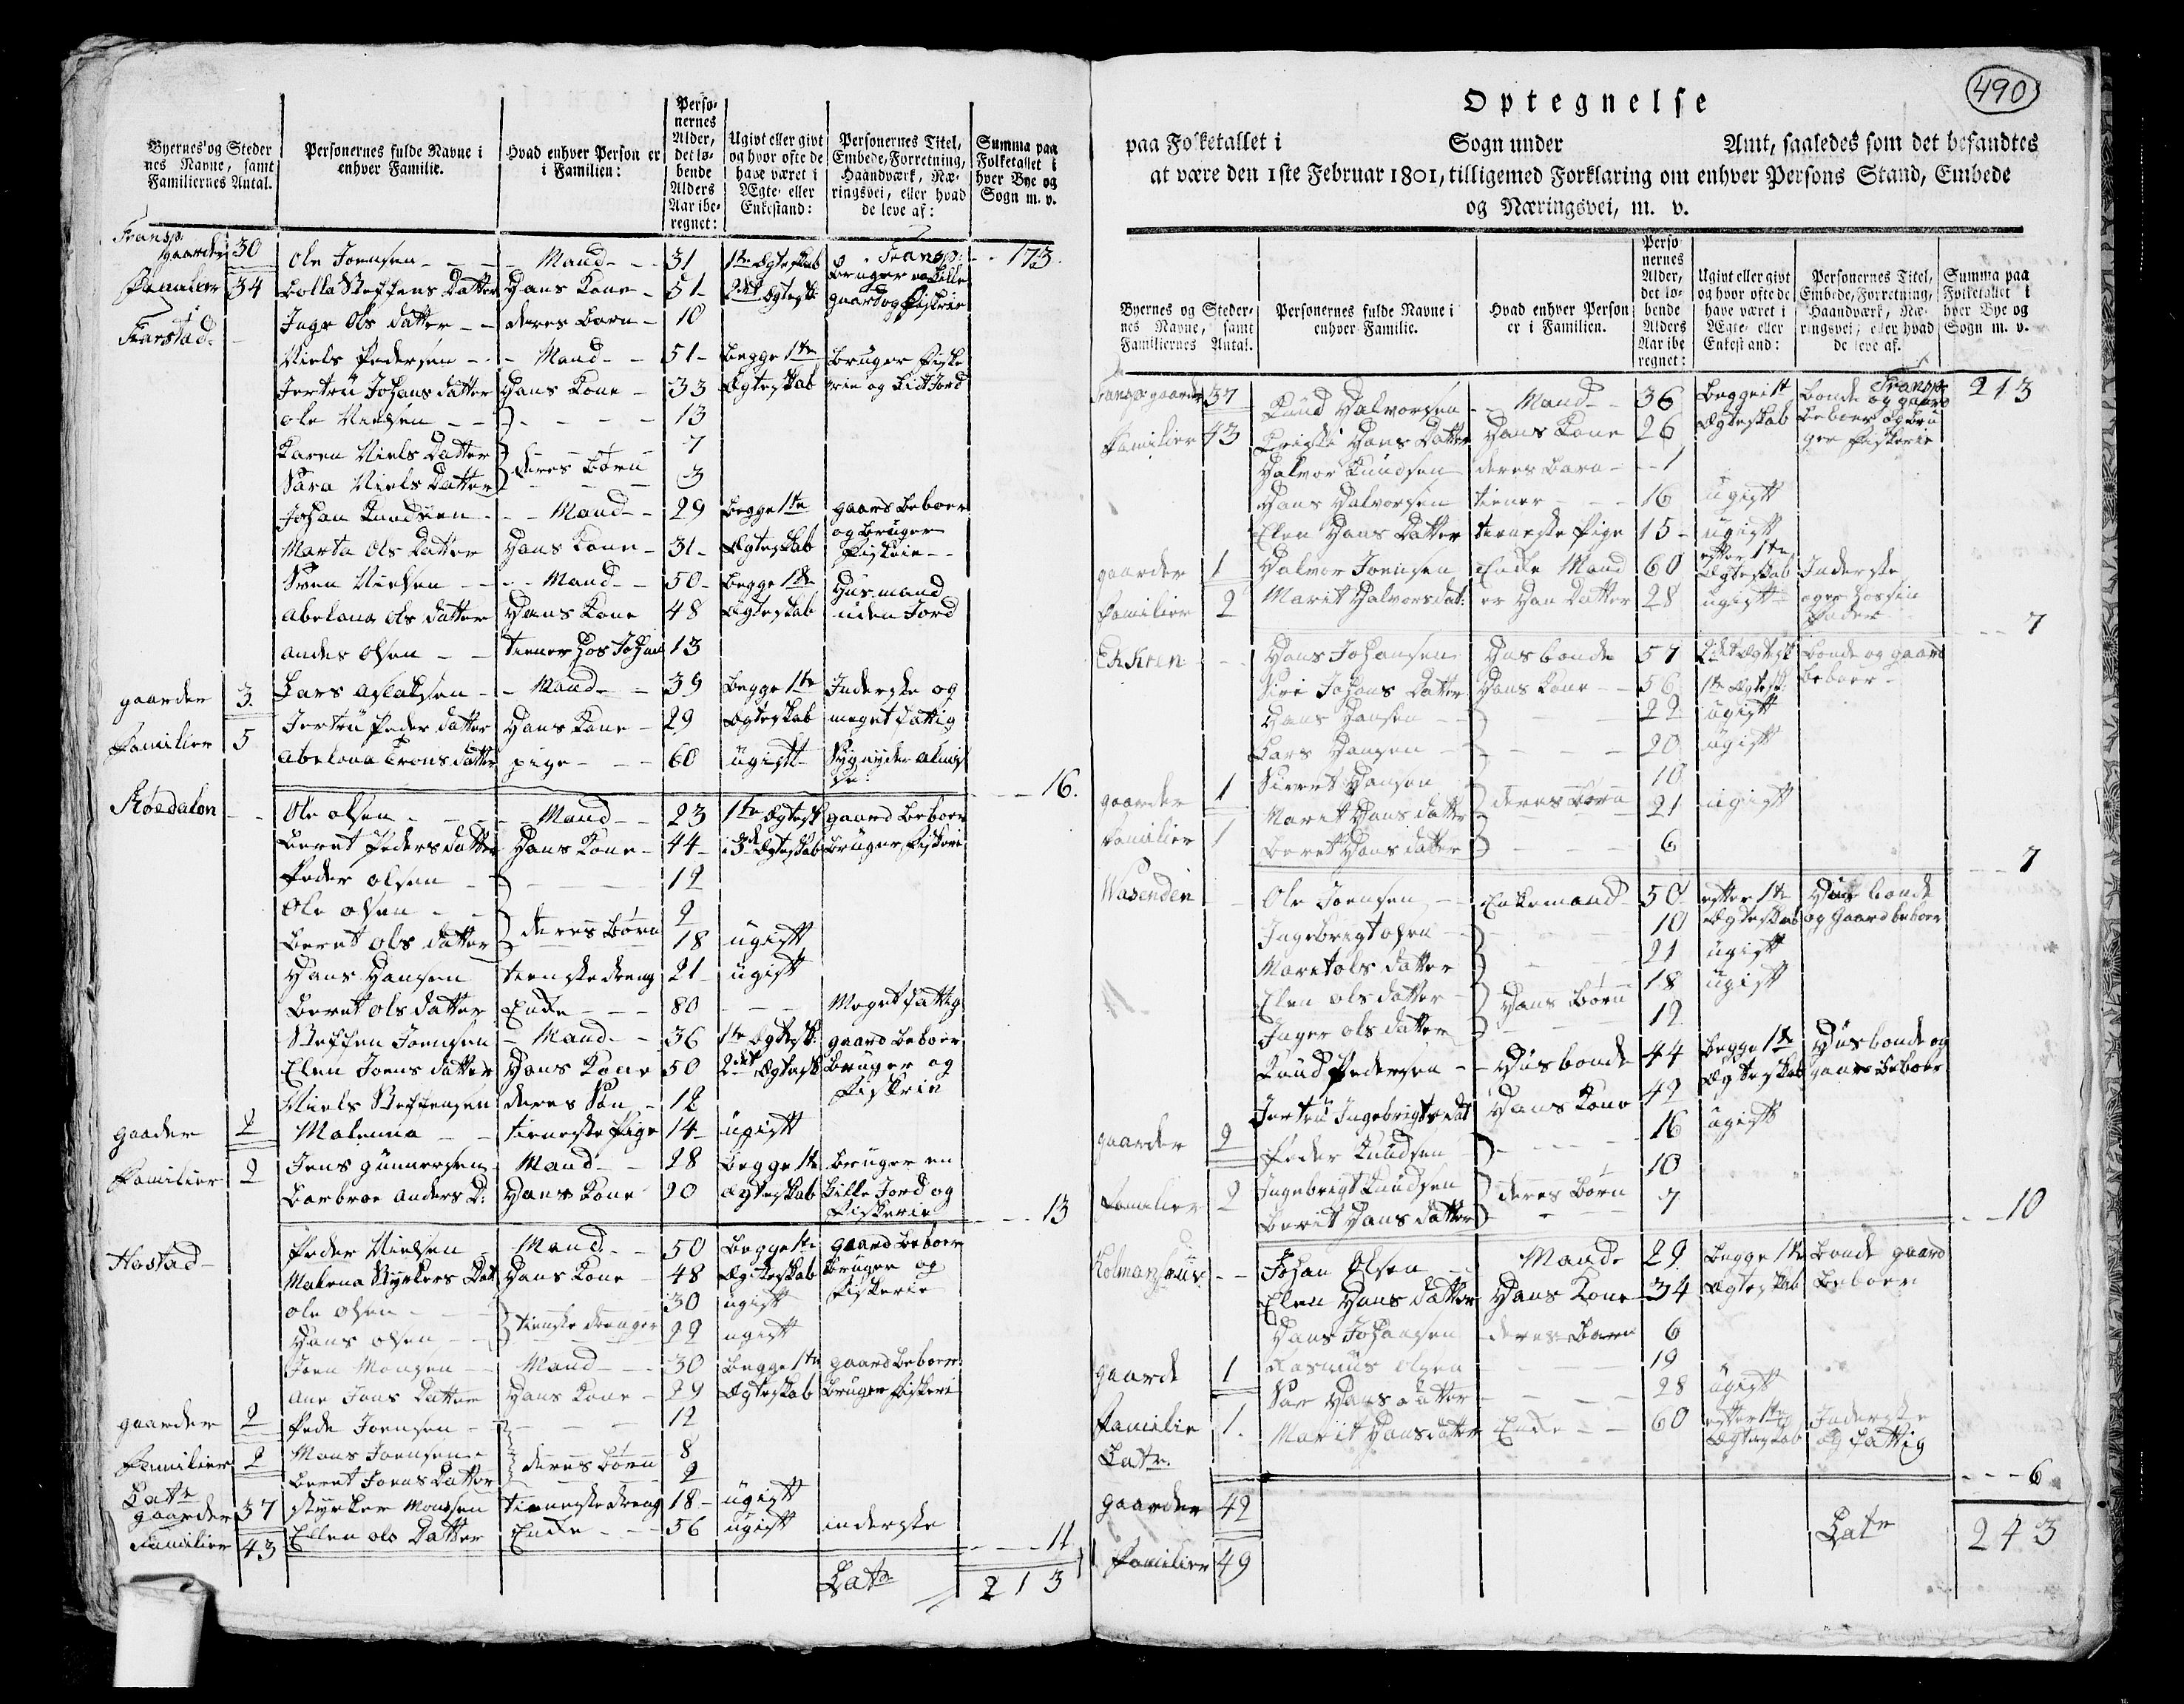 Byernes og Steder
nes Navne, samt
Familiernes Antal.
Personernes fulde Navne i
enhver Familie.
Hvad enhver Person er
i Familien:
Perso-
nernes
Alder,
det lø-
bende
Alders
Aar ibe-
regnet:
Ugivt eller givt
og hvor ofte de
have været i
Ægte- eller
Enkestand:
Personernes Titel,
Embede, Forretning,
Haandværk, Næ-
ringsvei, eller hvad
de leve af:
Summa paa
Folketallet i
hver Bye og
Sogn m. v.
Transp:
gaarder 30 Ole Joensen Mand 31 1te Ægteskab Transp: 173.
bruger en Lille
Familier 34 Steffens Datter Hans Kone 51 2det Ægtesk: gaard og Fiskrie
Farstad Inge Ols datter deres barn 10
Niels Pedersen Mand 51 begge 1te bruger Fiske
Jertru Johans datter Hans Kone 33 Ægteskab rie og Lidt Jord
Ole Nielsen 13
Karen Niels Datter 7
Sara Niels Datter deres børn 3
Johan Knudsen Mand 29 begge 1te gaard beboer
og bruger
Marta Ols Datter Hans Kone 31 Ægteskab Fiskrie
Sven Nielsen Mand 50 begge 1te Husmand
Abelona Ols datter Hans Kone 48 Ægteskab uden Jord
Anders Olsen tiener hos Johan 13
gaarder 3. Lars Aslaksen Mand 39 begge 1te Inderste og
Jertru Peders datter Hans Kone 29 Ægteskab meget fattig
Familier 5 Abelona Trons datter pige 60 ugivt nyder Almis
se: 16.
Ole Olsen Mand 23 1te Ægtesk gaard beboer
Beret Peders datter Hans Kone 44 i 3de Ægteskab bruger Fiskeri
Peder Olsen 12
Ole Olsen 9
Beret Ols datter deres børn 18 ugivt
Hans Hansen tieneste dreng 21 ugivt
Beret Ols datter Enke 80 Meget fattig
Steffen Joensen Mand 36 1te Ægtesk: gaard beboer
Elen Joens datter Hans Kone 50 2det Ægtesk bruger og
Fiskrie
Niels Steffensen deres Søn 12
gaader 2 Malena tieneste Pige 14 ugivt
Familier 2 Jens Gunnersen Mand 28 begge 1te bruger en
Barbroe Anders D: Hans Kone 20 Ægteskab Lille Jord og
Fiskerie 13
Hostad Peder Nielsen Mand 50 begge 1te gaard beboer
Malena Styrkers Dat Hans Kone 48 Ægteskab bruger og
Fiskerie
Ole Olsen 30 ugivt
Hans Olsen tieneste drenger 22 ugivt
Joen Monsen Mand 30 begge 1te gaard beboer
Ane Jons Datter Hans Kone 29 Ægteskab bruger Fiskeri
gaarder 2 Pede Joensen 12
Familier 2 Mons Joensen 8
Beret Joens Datter deres børn 2
Latr
gaarder 37 Styrker Monsen tieneste dreng 18 ugivt
Familier 43 Ellen Ols Datter Enke 56 ugivt inderste 11
Latr 213
490
Optegnelse
paa Folketallet i Sogn under Amt, saaledes som det befandtes
at være den 1ste Februar 1801, tilligemed Forklaring om enhver Persons Stand, Embede
og Næringsvei, m. v.
Byernes og Steder-
nes Navne, samt
Familiernes Antal.
Personernes fulde Navne i
enhver Familie.
Hvad enhver Person
er i Familien.
Perso
nernes
Alder,
det lø-
bende
Alders
Aar ibe
regnet:
Ugivt eller givt
og hvor ofte de
have været i
Ægte- eller
Enkestand:
Personernes Titel,
Embede, Forretning,
Haandværk, Næ-
ringsvei, eller hvad
de leve af.
Summa paa
Folketallet i
hver Bye og
Sogn m. v.
Transp: gaarder 37 Knud Halvorsen Mand 36 begge 1t bonde og gaard Transp 213
Familier 43 Hans Datter Hans Kone 26 Ægteskab beboer og bru
ger Fiskerie
Halvor Knudsen deres barn 1
Hans Halvorsen tiener 16 ugivt
Elen Hans Datter tieneste Pige 15 ugivt
gaarder 1 Halvor Joensen Enke Mand 60 efter 1te Ægteskab Inderste
Familier 2 Marit Halvorsdat: er Han Datter 28 ugivt hos sin
Fader 7
Ekkren Hans Johansen Husbonde 57 2det Ægtesk bonde og gaard
Siri Johans Datter Hans Kone 56 1te Ægtesk beboer
Hans Hansen 22 ugivt
Lars Hansen 20 ugivt
gaarder 1 Sivert Hansen 10
Marit Hans datter deres børn 21 ugivt
Familier 1 Beret Hans datter 6 7
Wasenden Ole Joensen Enkemand 50 efter 1te Hus bonde
Ingebrigt Olsen 10 Ægteskab og Gaard beboer
Marit Ols datter 21 ugivt
Elen Ols datter Hans børn 18 ugivt
Inger Ols datter 12
Knud Pedersen Husbonde 44 begge 1te Husbonde og
Jertru Ingebrigts Dat Hans Kone 42 Ægteskab gaard beboer
gaarder 2 Peder Knudsen 16 ugivt
Ingebrigt Knudsen 10
Familier 2 Berit Hans datter deres børn 7 10
Johan Olsen Mand 29 begge 1te bonde gaard
Elen Hans datter Hans Kone 34 Ægteskab beboer
Hans Johansen deres barn 6
gaard 1 Rasmus Olsen 19
Hans datter 28 ugivt
Familie 1. Marit Hans datter Enke 60 efter 1te Inderste
Ægteskab og fattig
Latr. 6
gaarder 42
Latr 243
Familier 49